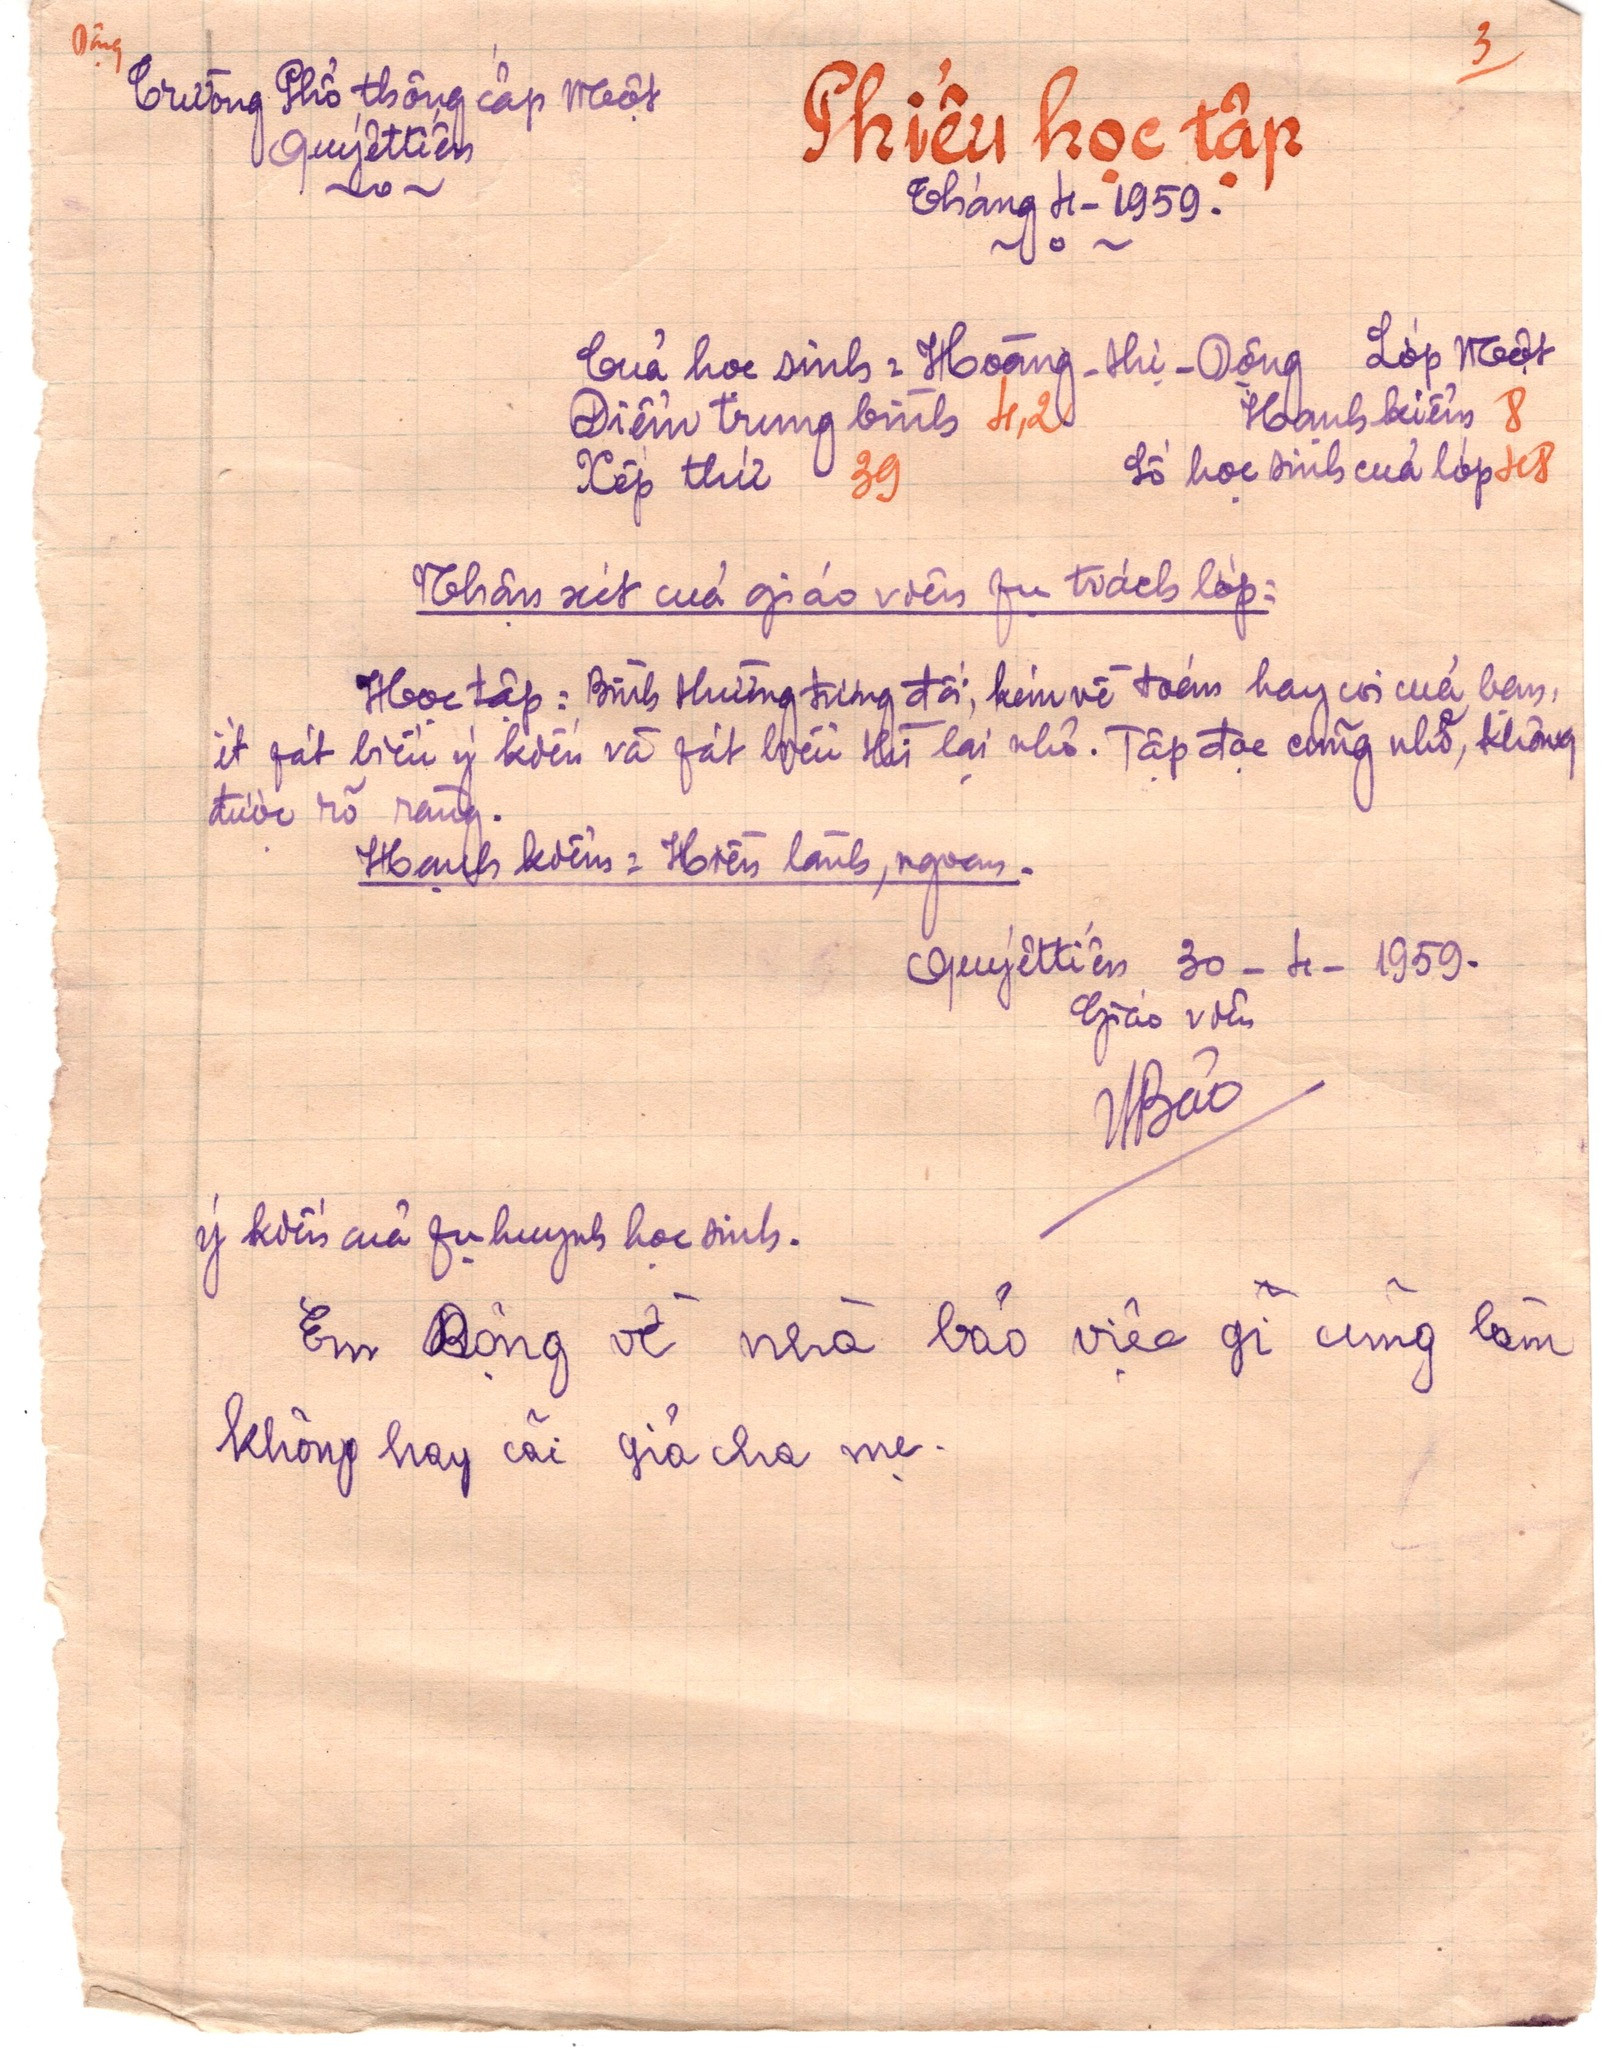 Động
3
Trường Phổ thông cấp Một
Quyếttiến
Phiếu học tập
Tháng 4 - 1959.
Cuả học sinh = Hoàng - thị - Động Lớp Một
Điểm trung bình 4,2 Hanh kiểm 8
Xếp thứ 39 Số học sinh cuả lớp 48
Nhận xét cuả giáo viên fụ trách lớp =
Học tập = Bình thường tương đối, kém về toán hay coi cuả bạn,
ít fát biểu ý kiến và fát biểu thì lại nhỏ. Tập đọc cũng nhỏ, không
được rõ ràng.
Hạnh kiểm = Hiền lành, ngoan.
Quyếttiến 30 - 4 - 1959.
Giáo viên
Bảo
ý kiến cuả fụ huynh học sinh.
Em Động về nhà bảo việc gì cũng làm
không hay cãi giả cha mẹ.